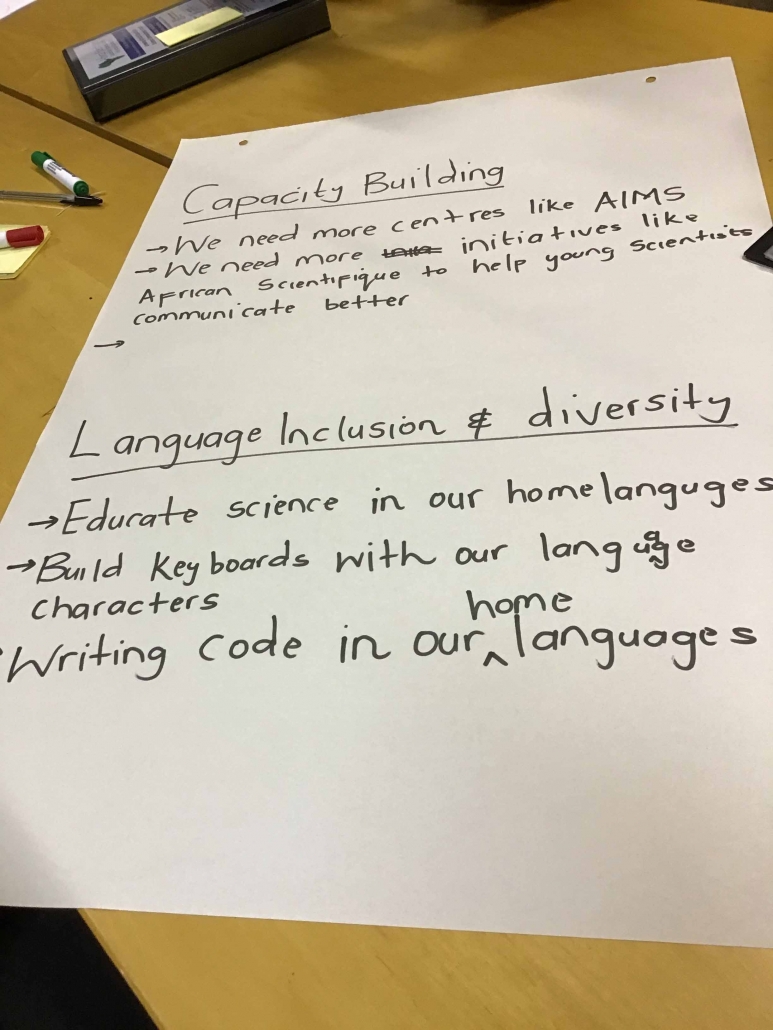 Capacity Building
→ We need more centres like AIMS
→ We need more initiatives like
African Scientifique to help young scientists
communicate better
→
Language Inclusion & diversity
→ Educate science in our homelanguges
→ Build Keyboards with our language
characters
Writing code in our home languages